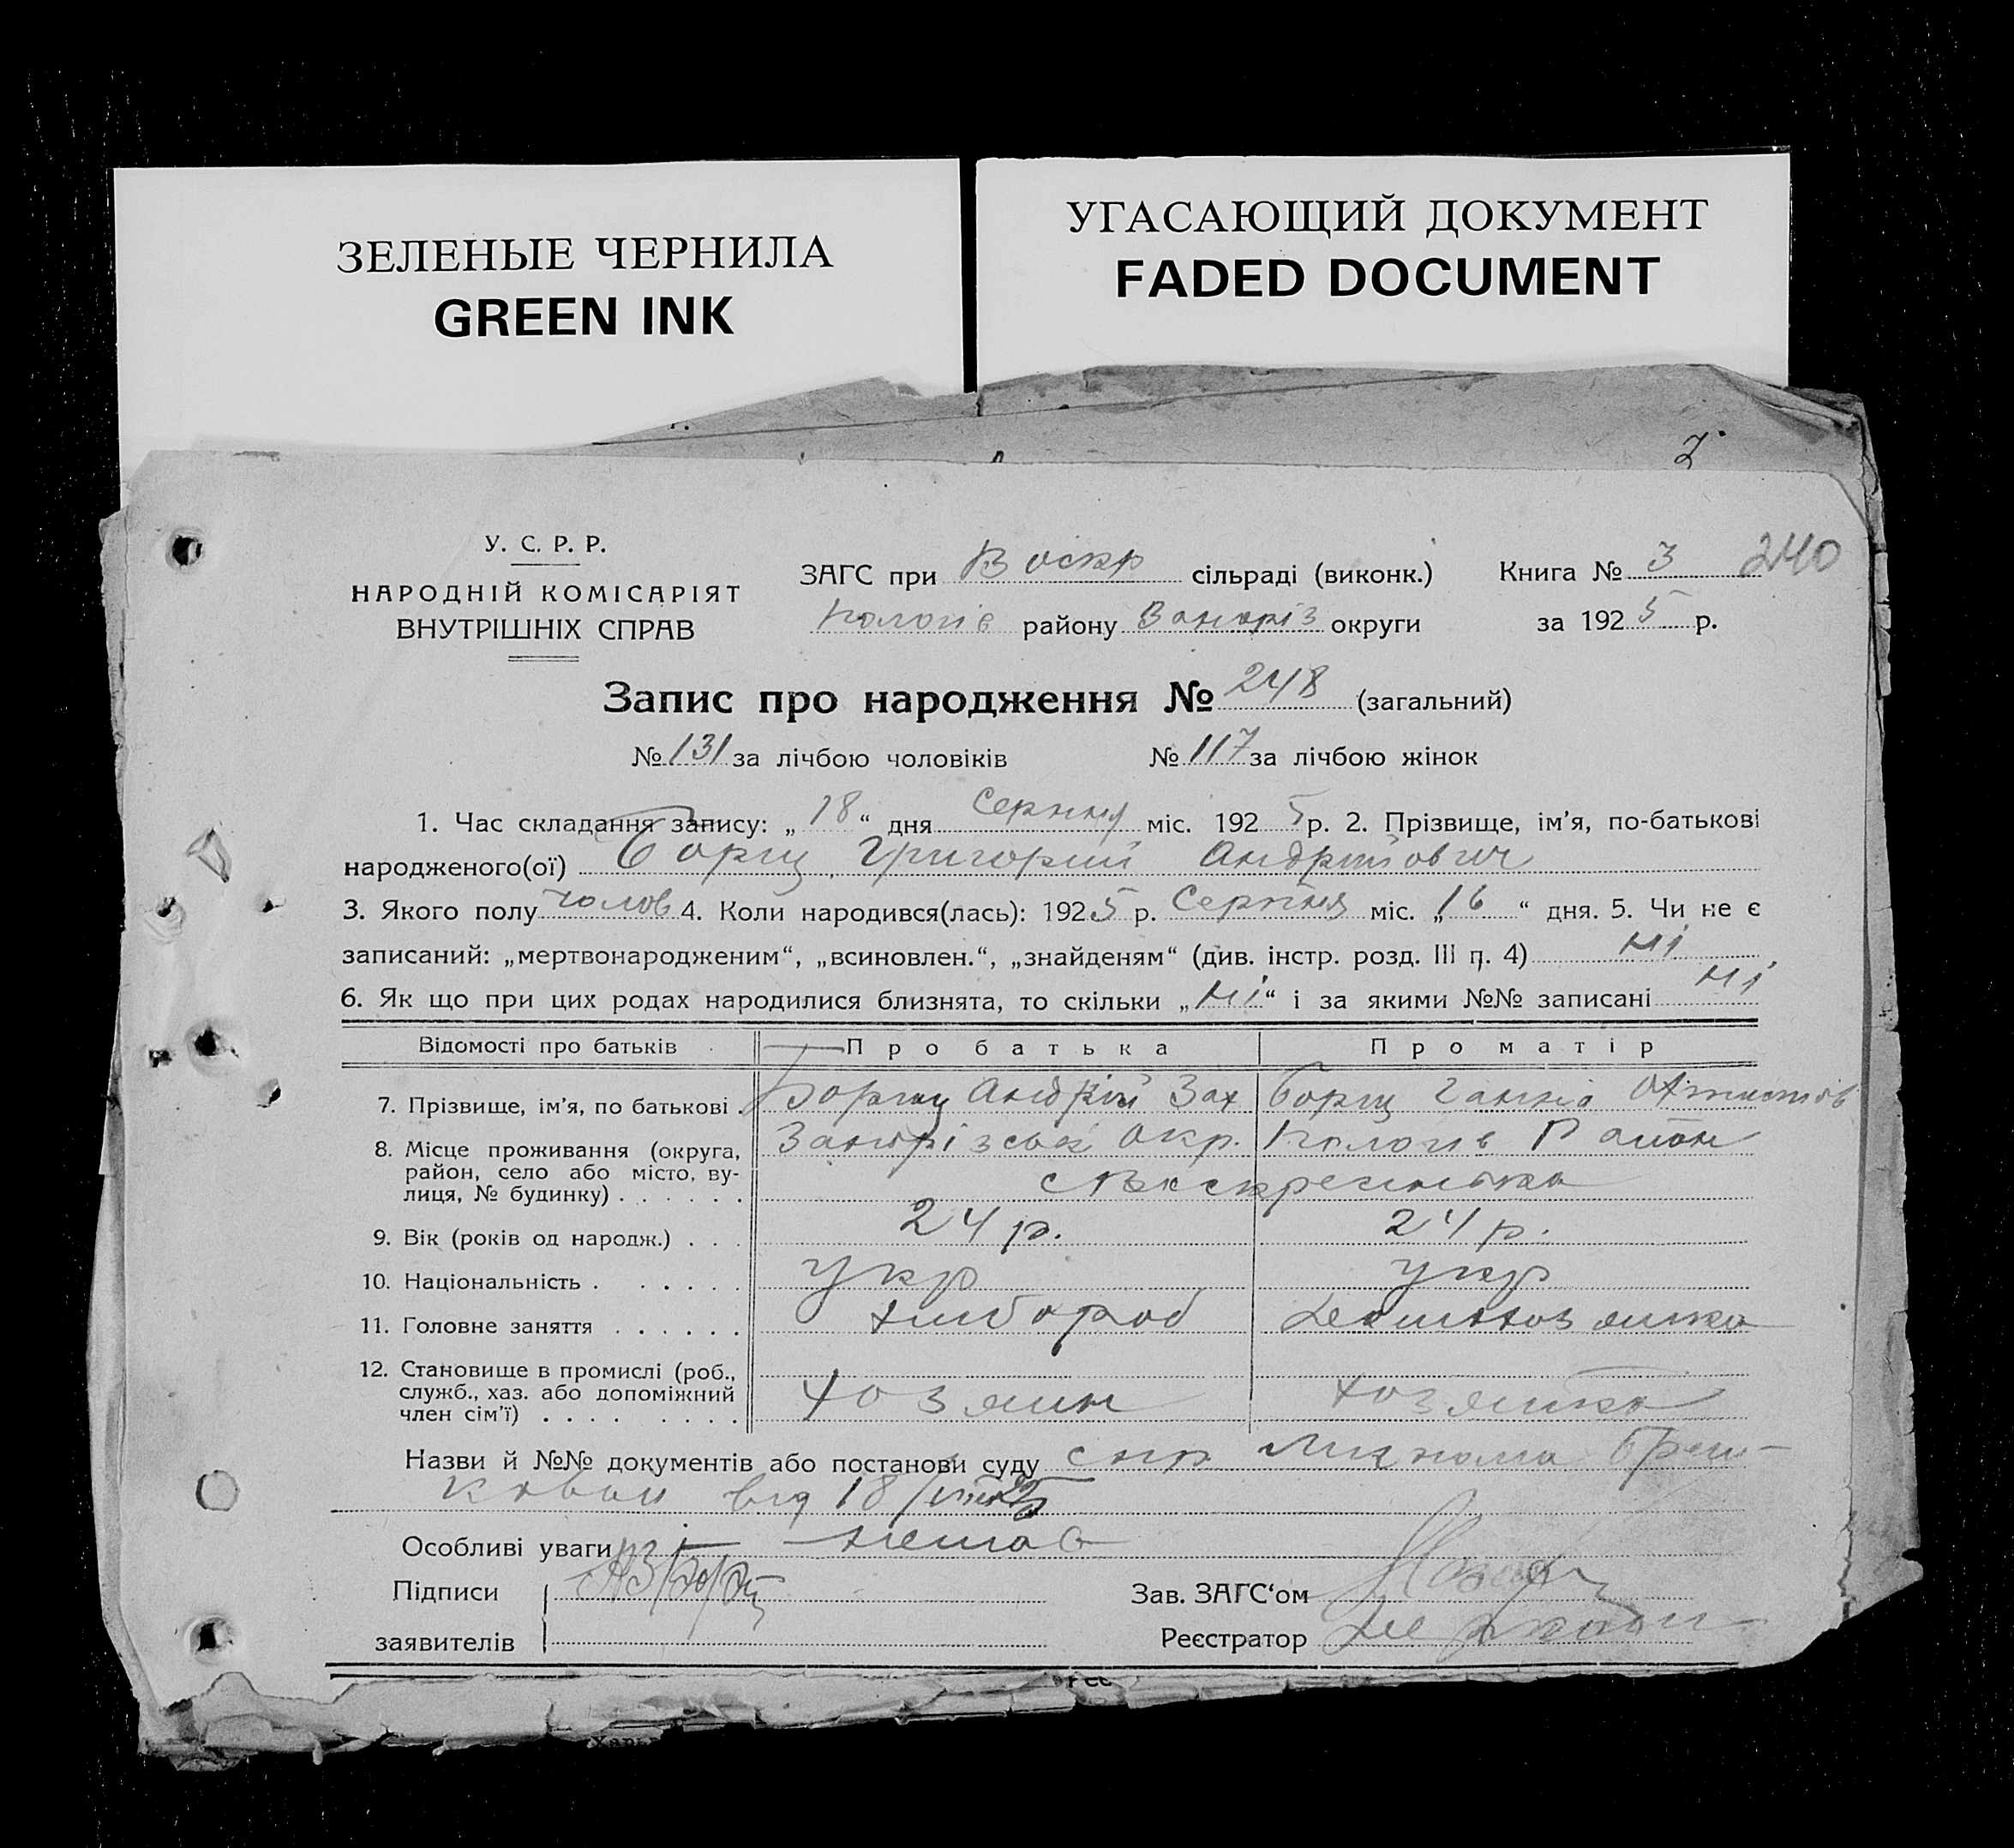 ЗЕЛЕНЫЕ ЧЕРНИЛА
GREEN INK
УГАСАЮЩИЙ ДОКУМЕНТ
FADED DOCUMENT
У. С. Р. Р.
НАРОДНІЙ КОМІСАРІЯТ
ВНУТРІШНІХ СПРАВ
ЗАГС при Воскр сільраді (виконк.)
Пологів району Запоріз округи
Книга № 3 240
за 1925 р.
Запис про народження № 248 (загальний)
№ 131 за лічбою чоловіків № 117 за лічбою жінок
1. Час складання запису: „18“ дня Серпня міс. 1925 р. 2. Прізвище, ім’я, по-батькові
народженого(ої) Борщ Григорий Андрійович
3. Якого полу чолов 4. Коли народився(лась): 1925 р. Серпня міс. „16“ дня. 5. Чи не є
записаний: „мертвонародженим“, „всиновлен.“, „знайденям“ (див. інстр. розд. III п. 4) ні
6. Як що при цих родах народилися близнята, то скільки „ні“ і за якими №№ записані ні
Відомості про батьків Про батька Про матір
7. Прізвище, ім’я, по батькові . Борщ Андрій Зах Борщ Ганна
8. Місце проживання (округа, район, село або місто, вулиця, № будинку) . . . . . . Запорізськ Окр. Пологів Район
с Воскресенька
9. Вік (років од народж.) . . . 24 р. 24 р.
10. Національність . . . . . . укр укр
11. Головне заняття . . . . . . хлібороб домохозяйка
12. Становище в промислі (роб., служб., хаз. або допоміжний член сім’ї) . . . . . . . . . хозяин хозяйка
Назви й №№ документів або постанови суду спр
від 18/VIII 25
Особливі уваги немає
Підписи
заявителів
Зав. ЗАГС‘ом
Реєстратор